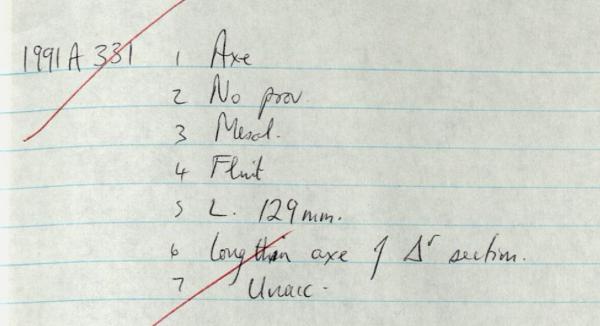 1991A 331 1 Axe
2 No prov.
3 Mesol.
4 Flint
5 L. 129mm.
6 Long thin axe of Δʳ section.
7 Unacc.